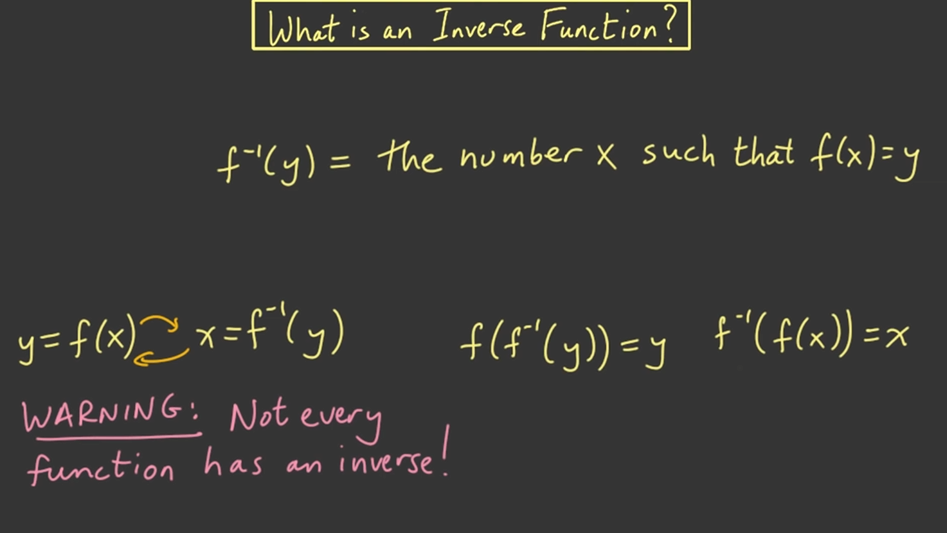 What is an Inverse Function?
f⁻¹(y) = the number x such that f(x)=y
y=f(x) x=f⁻¹(y) f(f⁻¹(y))=y f⁻¹(f(x))=x
WARNING: Not every
function has an inverse!